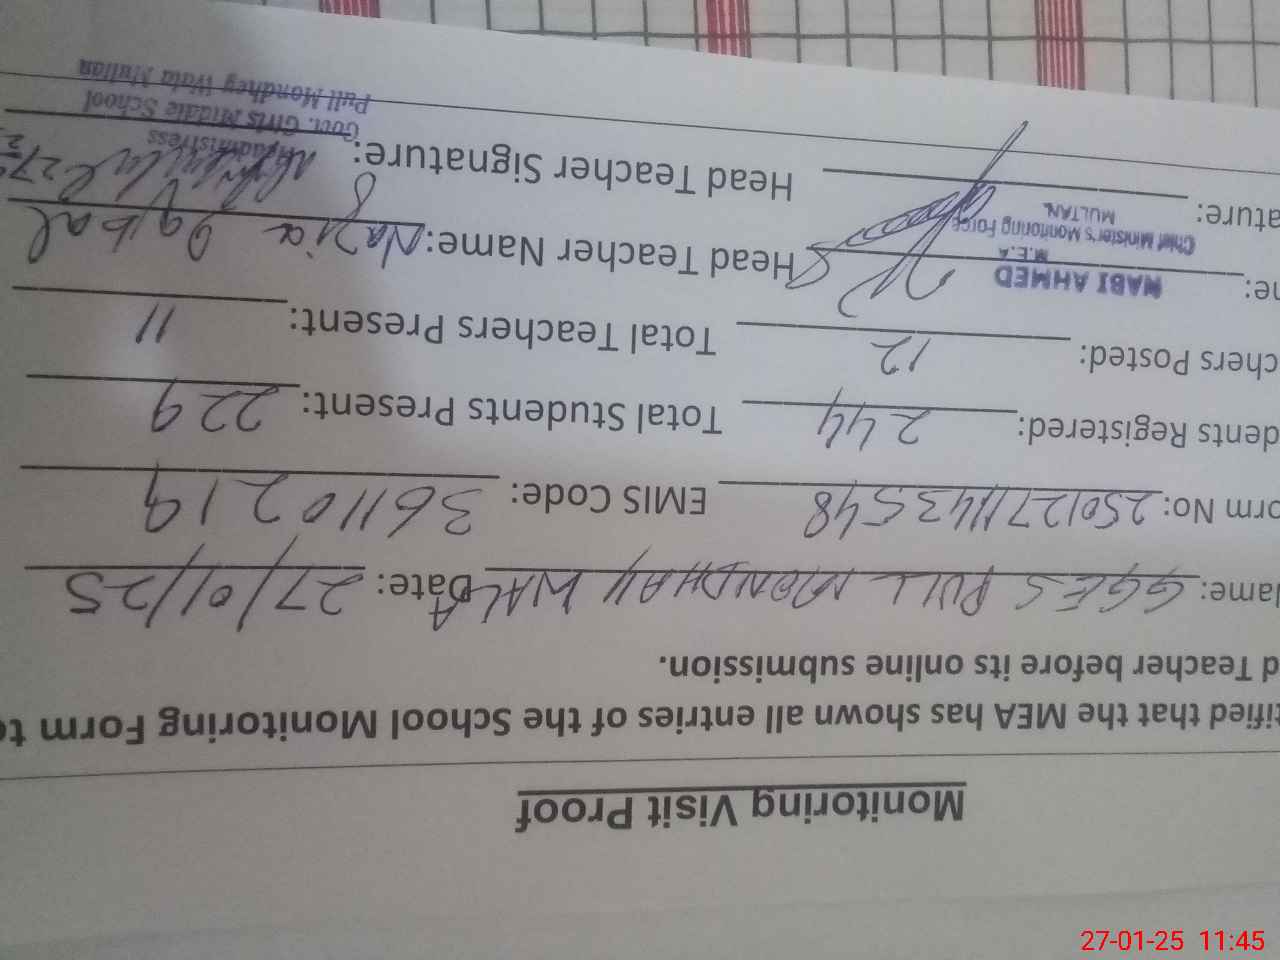 Monitoring Visit Proof
tified that the MEA has shown all entries of the School Monitoring Form to
d Teacher before its online submission.
lame: GGES PULL MONDHAY WALA Date: 27/01/25
orm No: 2501271143548 EMIS Code: 36110219
dents Registered: 244 Total Students Present: 229
chers Posted: 12 Total Teachers Present: 11
ne: NABI AHMED Head Teacher Name: Nazia Iqbal
M.E.A
Chief Minister's Monitoring Force
MULTAN.
ature: Head Teacher Signature:
Headmistress
Govt. Girls Middle School
Pull Mondhey Wala Multan
27-01-25 11:45